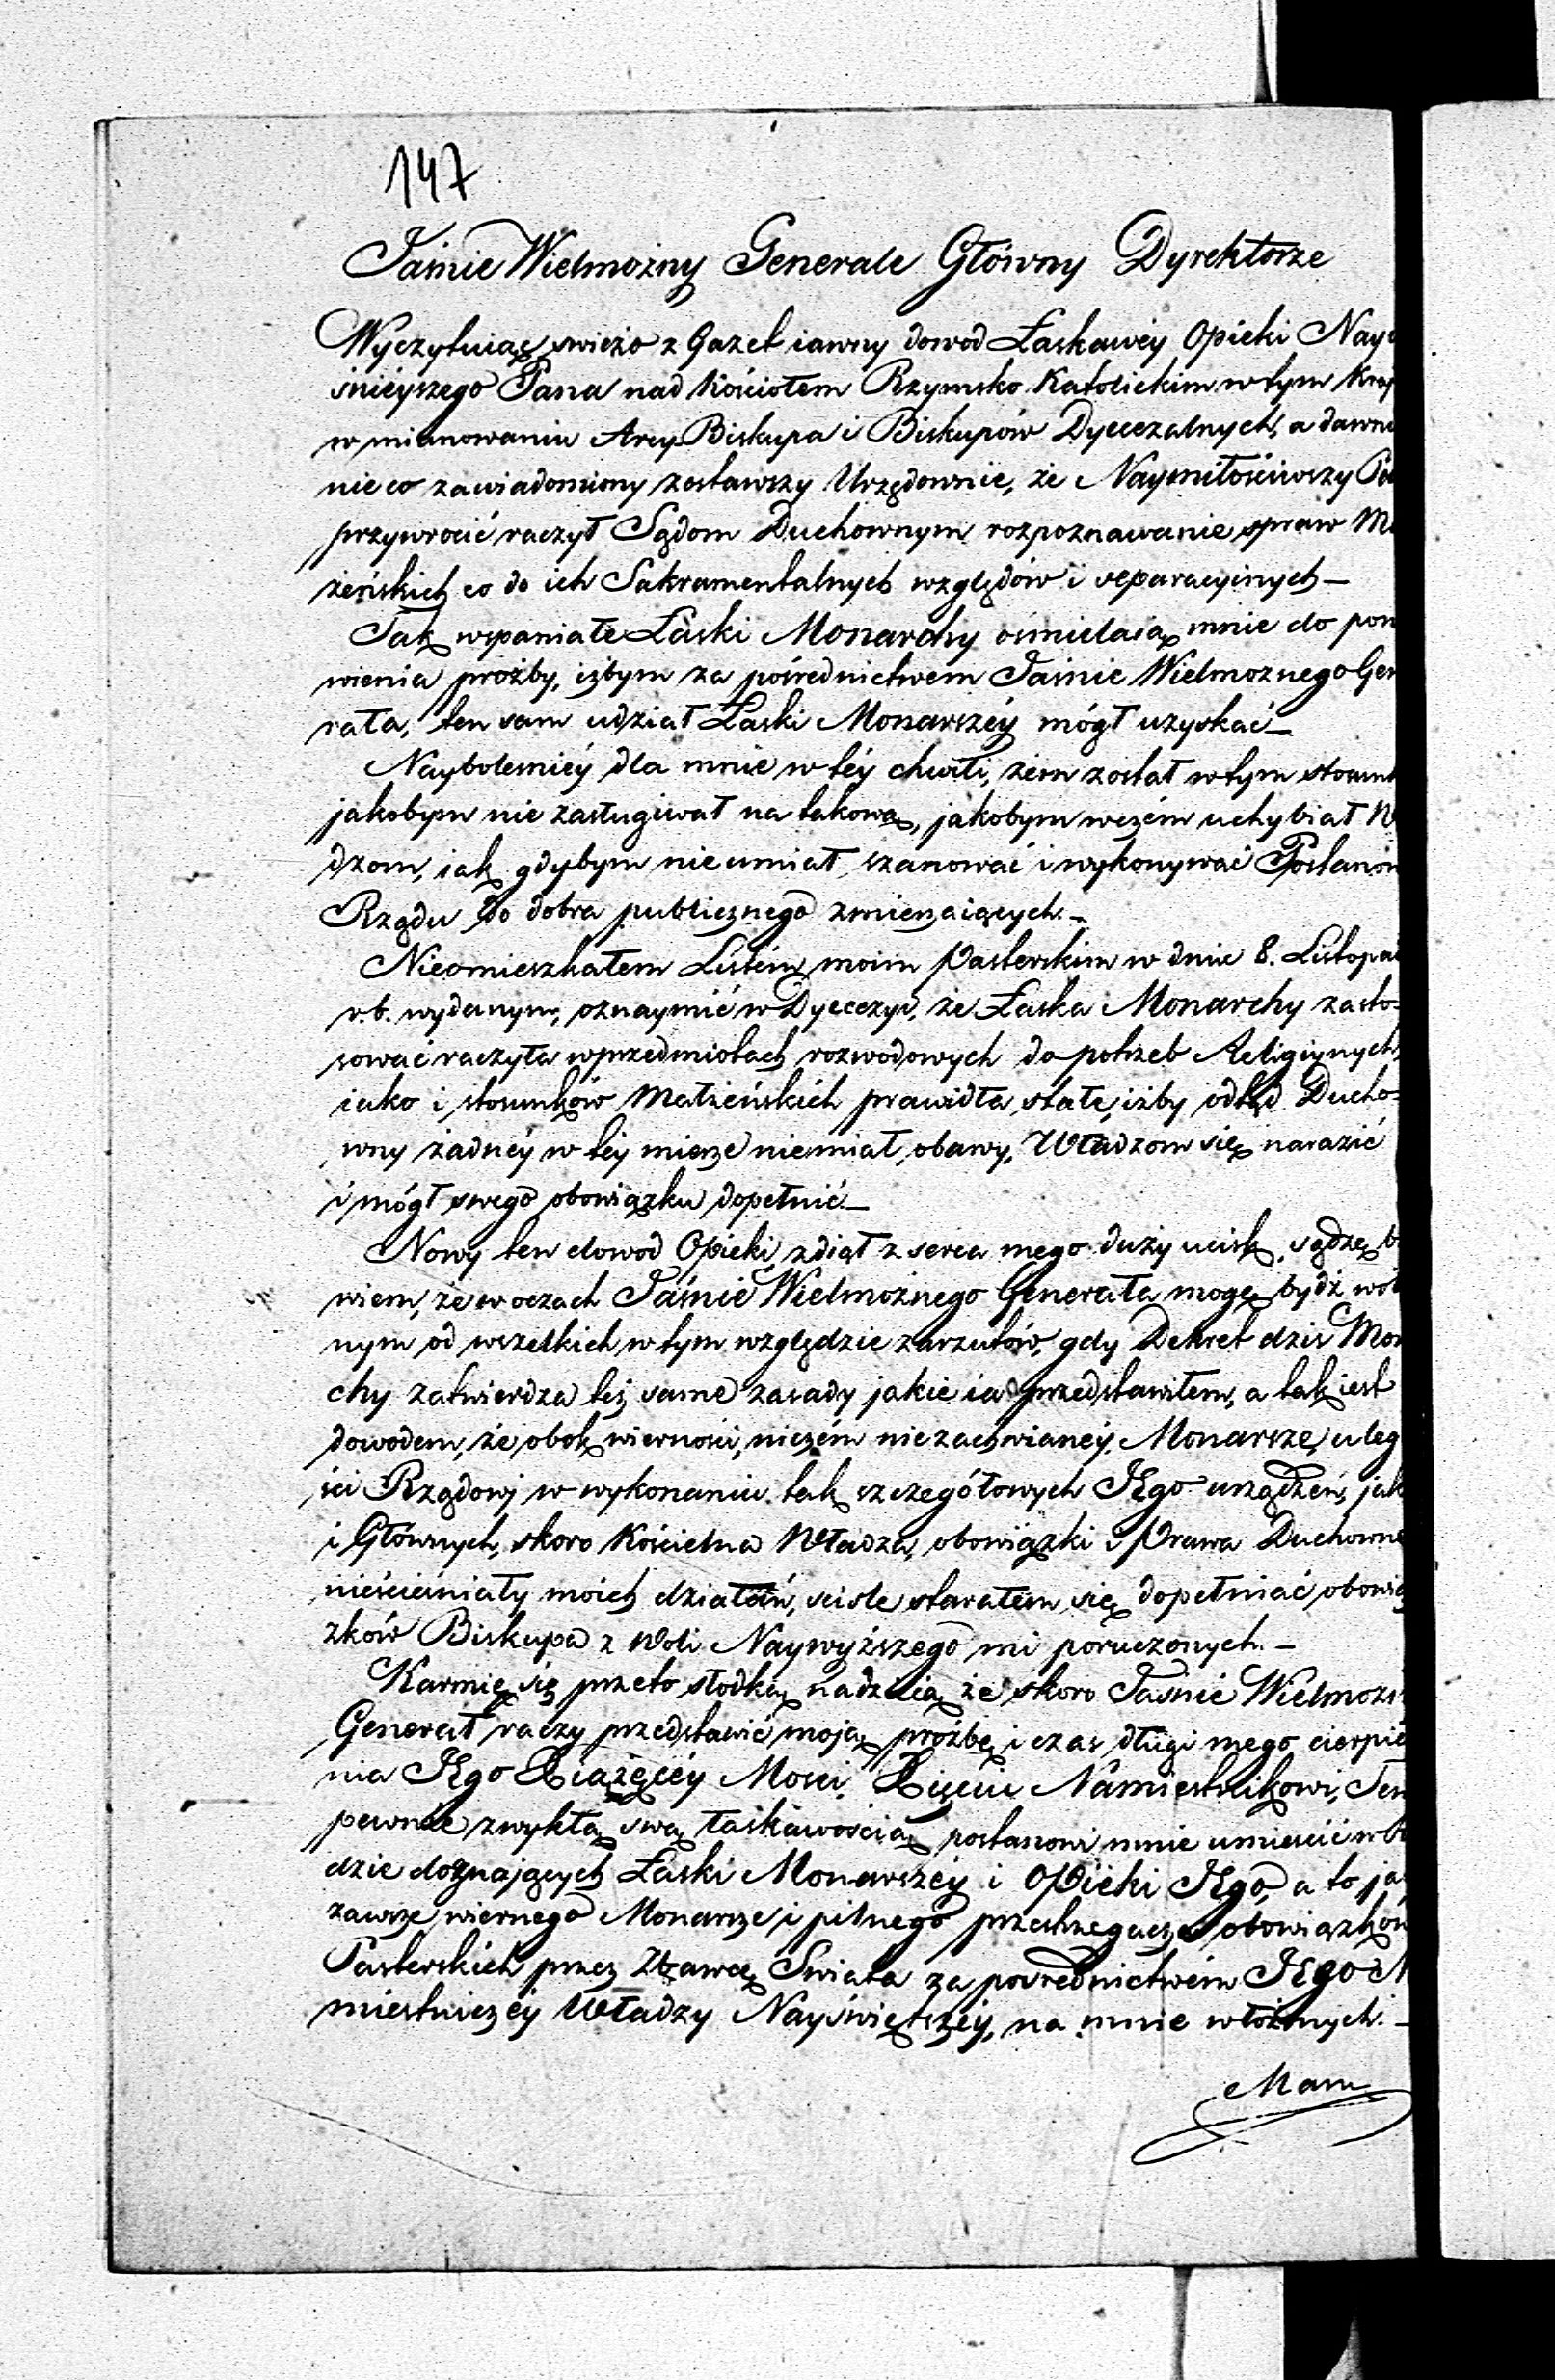 147
Jaśnie Wielmożny Generale Główny Dyrektorze
Wyczytuiąc swieżo z Gazet iawny dowod Łaskawéy Opieki Nay
śnieyszego Pana nad Kościołem Rzymsko Katolickim w tym Kraj
w mianowaniu Arcy Biskupa i Biskupów Dyecezalnych, a dawni
nieco zawiadomiony zostawszy Urzędownie, że Naymiłościwszy Pa
przywrocić raczył Sądom Duchownym rozpoznawanie spraw Ma
żeńskich co do ich Sakramentalnych względów i separacyinych —
Tak wspaniałe Łaski Monarchy ośmielaią mnie do pon
wienia proźby, iżbym za pośrednictwem Jaśnie Wielmoznego Gen
rała, ten sam udział Łaski Monarszéy mógł uzyskać —
Nayboleśniéy dla mnie w téy chwili, żem został w tym stosunk
jakobym nie zasługiwał na takową, jakobym wczém uchybiał W
dzom, iak gdybym nie umiał szanować i wykonywać Postanów
Rządu do dobra publicznego zmierzaiących. —
Nieomieszkałem Listem moim Pasterskim w dnie 8. Listopad
r. b. wydanym, oznaymić w Dyecezyi, że Łaska Monarchy zasto-
sować raczyła w przedmiotach rozwodowych do potrzeb Religiynych,
iako i stosunków Małżeńskich prawidła stałe, iżby odtąd Ducho-
wny żadnéy w téy mierze niemiał obawy, Władzom się narazić
i mógł swego obowiązku dopełnić. —
Nowy ten dowod Opieki zdiął z serca mego duży ucisk, sądzę b
wiem, że w oczach Jaśnie Wielmożnego Generała mogę bydź wol
nym od wszelkich w tym względzie zarzutów, gdy Dekret dziś Mon
chy zatwierdza też same zasady jakie ia przedstawiłem, a tak iest
dowodem, że obok wierności niczém niezachwianéy Monarsze, uleg
ści Rządowj w wykonaniu tak szczegółowych Jego urządzeń, jak
i Głównych, skoro Kościelna Władza, obowiązki i Prawa Duchowne
nieścieśniały moich działań, sciśle starałem się dopełniać obowią
zków Biskupa z Woli Naywyższego mi poruczonych. —
Karmię się przeto słodką nadzieią że skoro Jaśnie Wielmożn
Generał raczy przedstawić moją proźbę i czas długi mego cierpie
nia Jego Xiążęcéy Mości Xięciu Namiestnikowi, Ten
pewnie zwykłą swą łaskawością postanowi mnie umieścić w
dzie doznających Łaski Monarszéy i Opieki Jego, a to ja
zawsze wiernego Monarsze i pilnego przestrzegacza obowiązków
Pasterskich przez Zbawcę Swiata za posrednictwem Jego N
miestniczéy Władzy Nayświętszéy, na mnie włożonych. —
Mam